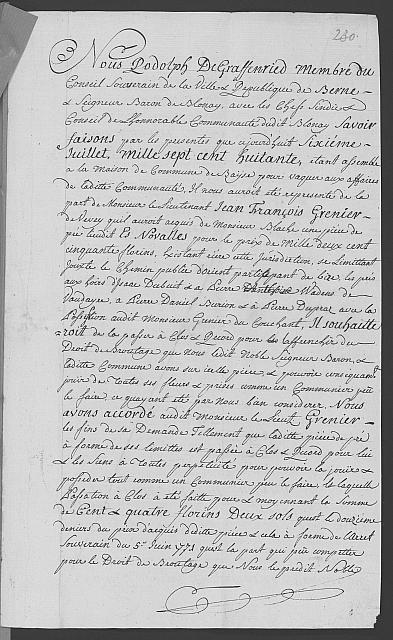 280.
Nous Rodolph DeGraffenried membre du
Conseil Souverain de la Ville & Republique de Berne
& Seigneur Baron de Blonay, avec les Chefs Sindic &
Conseil de L'honnorable Communauté dudit Blonay Savoir
faisons par les presentes que ajourd'huit Sixieme
Juillet, mille sept cent huitante, étant assemblé
à la maison de Commune de Baÿse pour vaquer aux affaires
de Laditte Communauté, Il nous auroit été representé de la
part de Monsieur le Lieutenant Jean François Grenier
de Vevey qu'il auroit aquis de Monsieur Blache une pièce de
pré lieudit Es Novalles pour le préx de Mille deux cent
cinquante florins, Existant riere cette Jurisdiction, se Limittant
jouxte le Chemin public d'orient de bize, les prés
aux hoirs d'Isaac Debuit & a Pierre Wadens de
Vaudayse, a Pierre Daniel Burion & à Pierre Dupraz avec la
Possession audit Monsieur Grenier du Couchant, Il souhaite
roit de la passer à Clos & Record pour les affranchir du
Droit de Broutage que nous ledit Noble Seigneur Baron, &
Laditte Commune avons sur icelle pièce, & pouvoir consequament
jouir de toutes ses fleurs & prises comme un Communier peu
le faire, ce qu'ayant été par nous ban considerer, Nous
avons accordé audit Monsieur le Lieut. Grenier
les fins de sa Demande Tellement que laditte pièce de pré
à forme de ses limittes est passée à Clos & Record pour lui
& les siens à Toutes perpetuité pour pouvoir la jouir &
posseder tout comme un Communier peu le faire, laquelle
Passation à Clos à été faitte pour & moyennant la Somme
de Cent & quatre florins Deux sols qu'est le douzieme
deniers du prix d'aquis deditte pièce & cela à forme de l'arrêt
Souverain du 5e Juin 1771 qu'est la part que peu competter
pour le Droit de Broutage que Nous le predit Noble